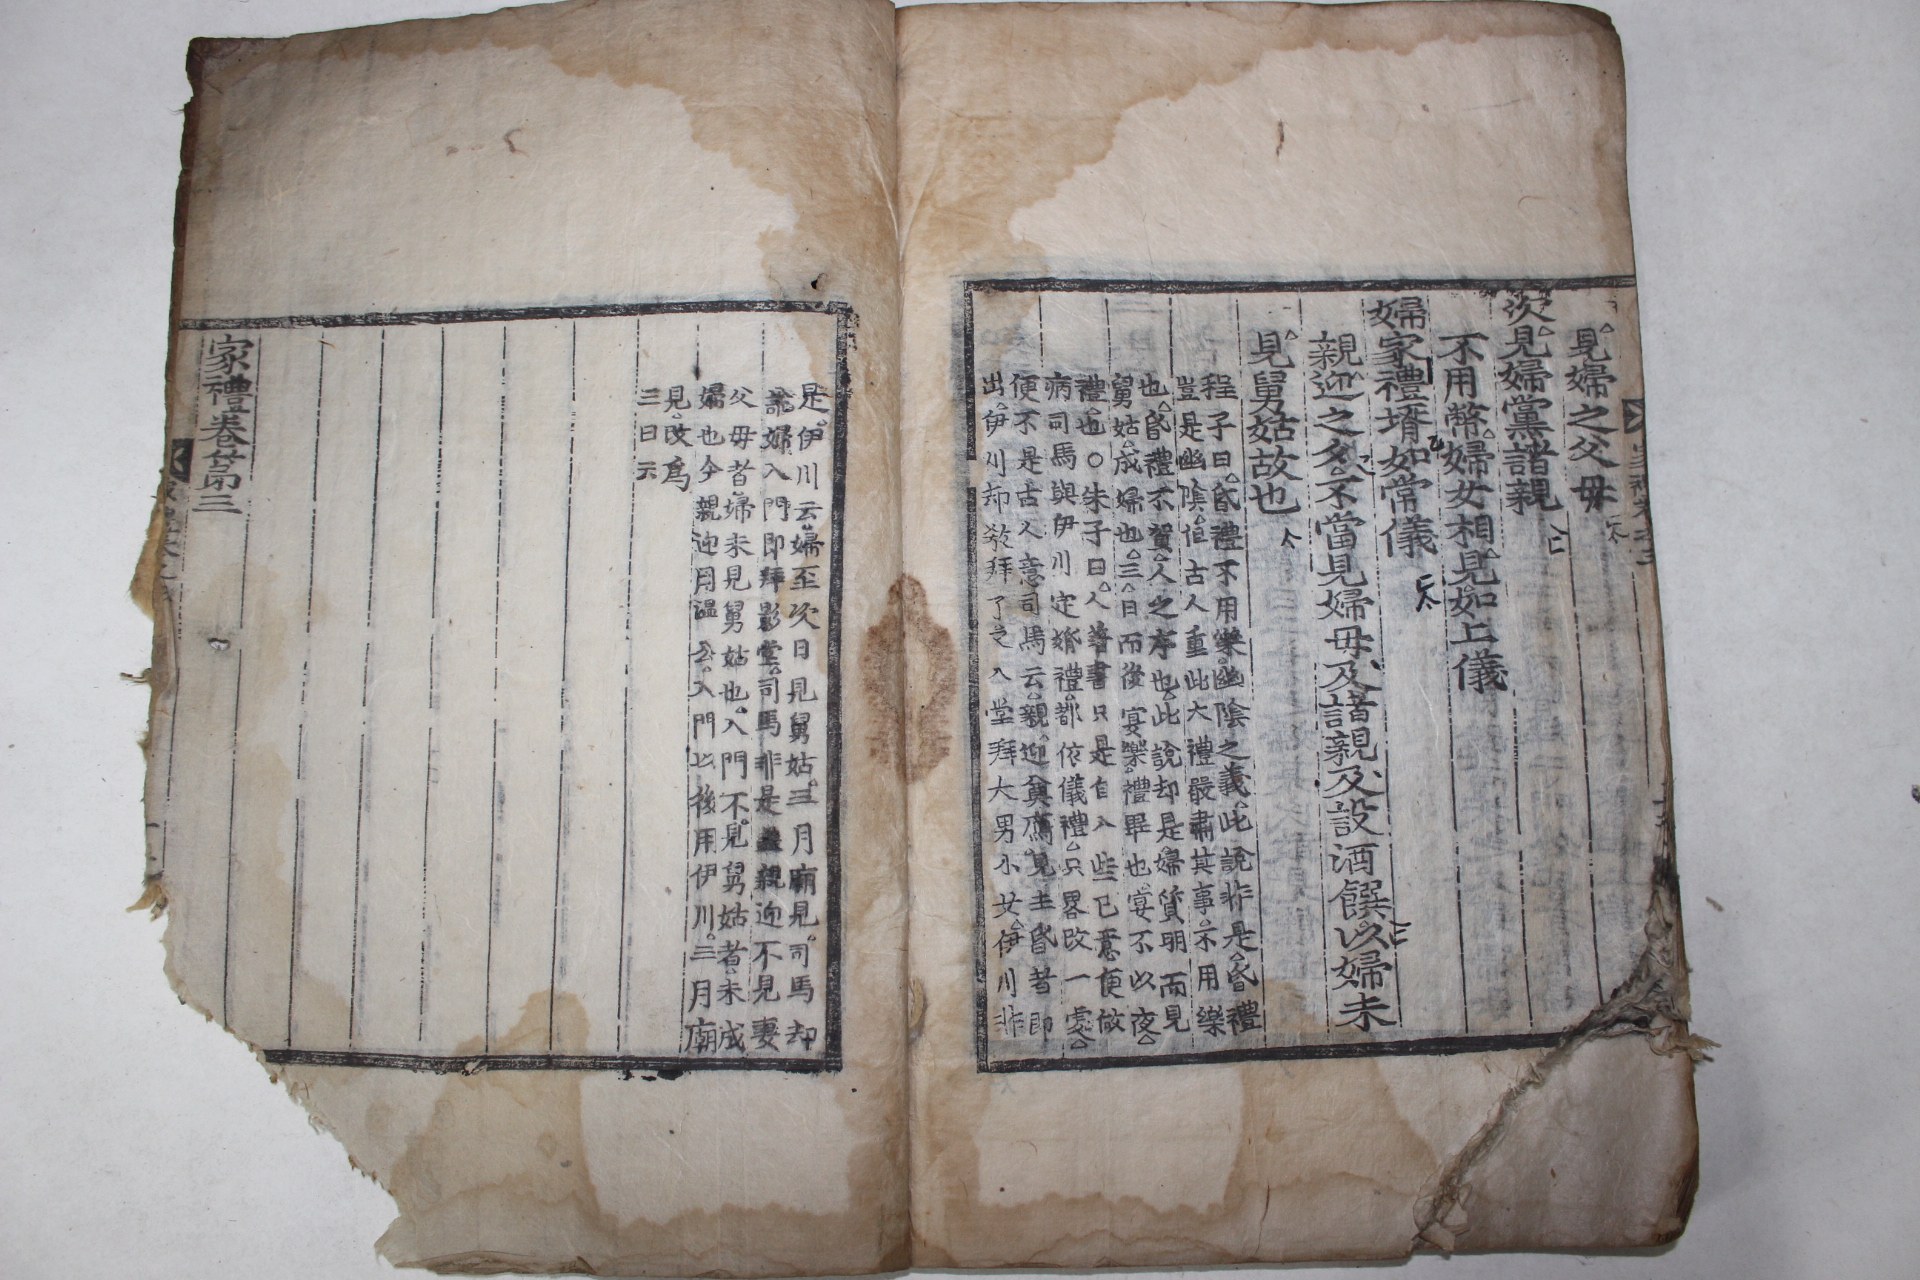 見婦之父母
次見婦黨諸親
不用幣婦女相見如上儀
婦家禮壻如常儀
親迎之夕不當見婦母及諸親及設酒饌以婦未
見舅姑故也
程子曰昏禮不用樂幽陰之義此說非是昏禮
豈是幽陰但古人重此大禮嚴肅其事不用樂
也昏禮不賀人之序也此說却是婦質明而見
舅姑成婦也三日而後宴樂禮畢也宴不以夜
禮也○朱子曰人著書只是自入些己意便做
病司馬與伊川定婚禮都依儀禮只畧改一處
便不是古人意司馬云親迎奠鴈見主昏者即
出伊川却教拜了又入堂拜大男小女伊川非
是伊川云婦至次日見舅姑三月廟見司馬却
說婦入門即拜影堂司馬非是盖親迎不見妻
父母者婦未見舅姑也入門不見舅姑者未成
婦也今親迎用溫公入門以後用伊川三月廟
見改爲
三日云
家禮卷第三